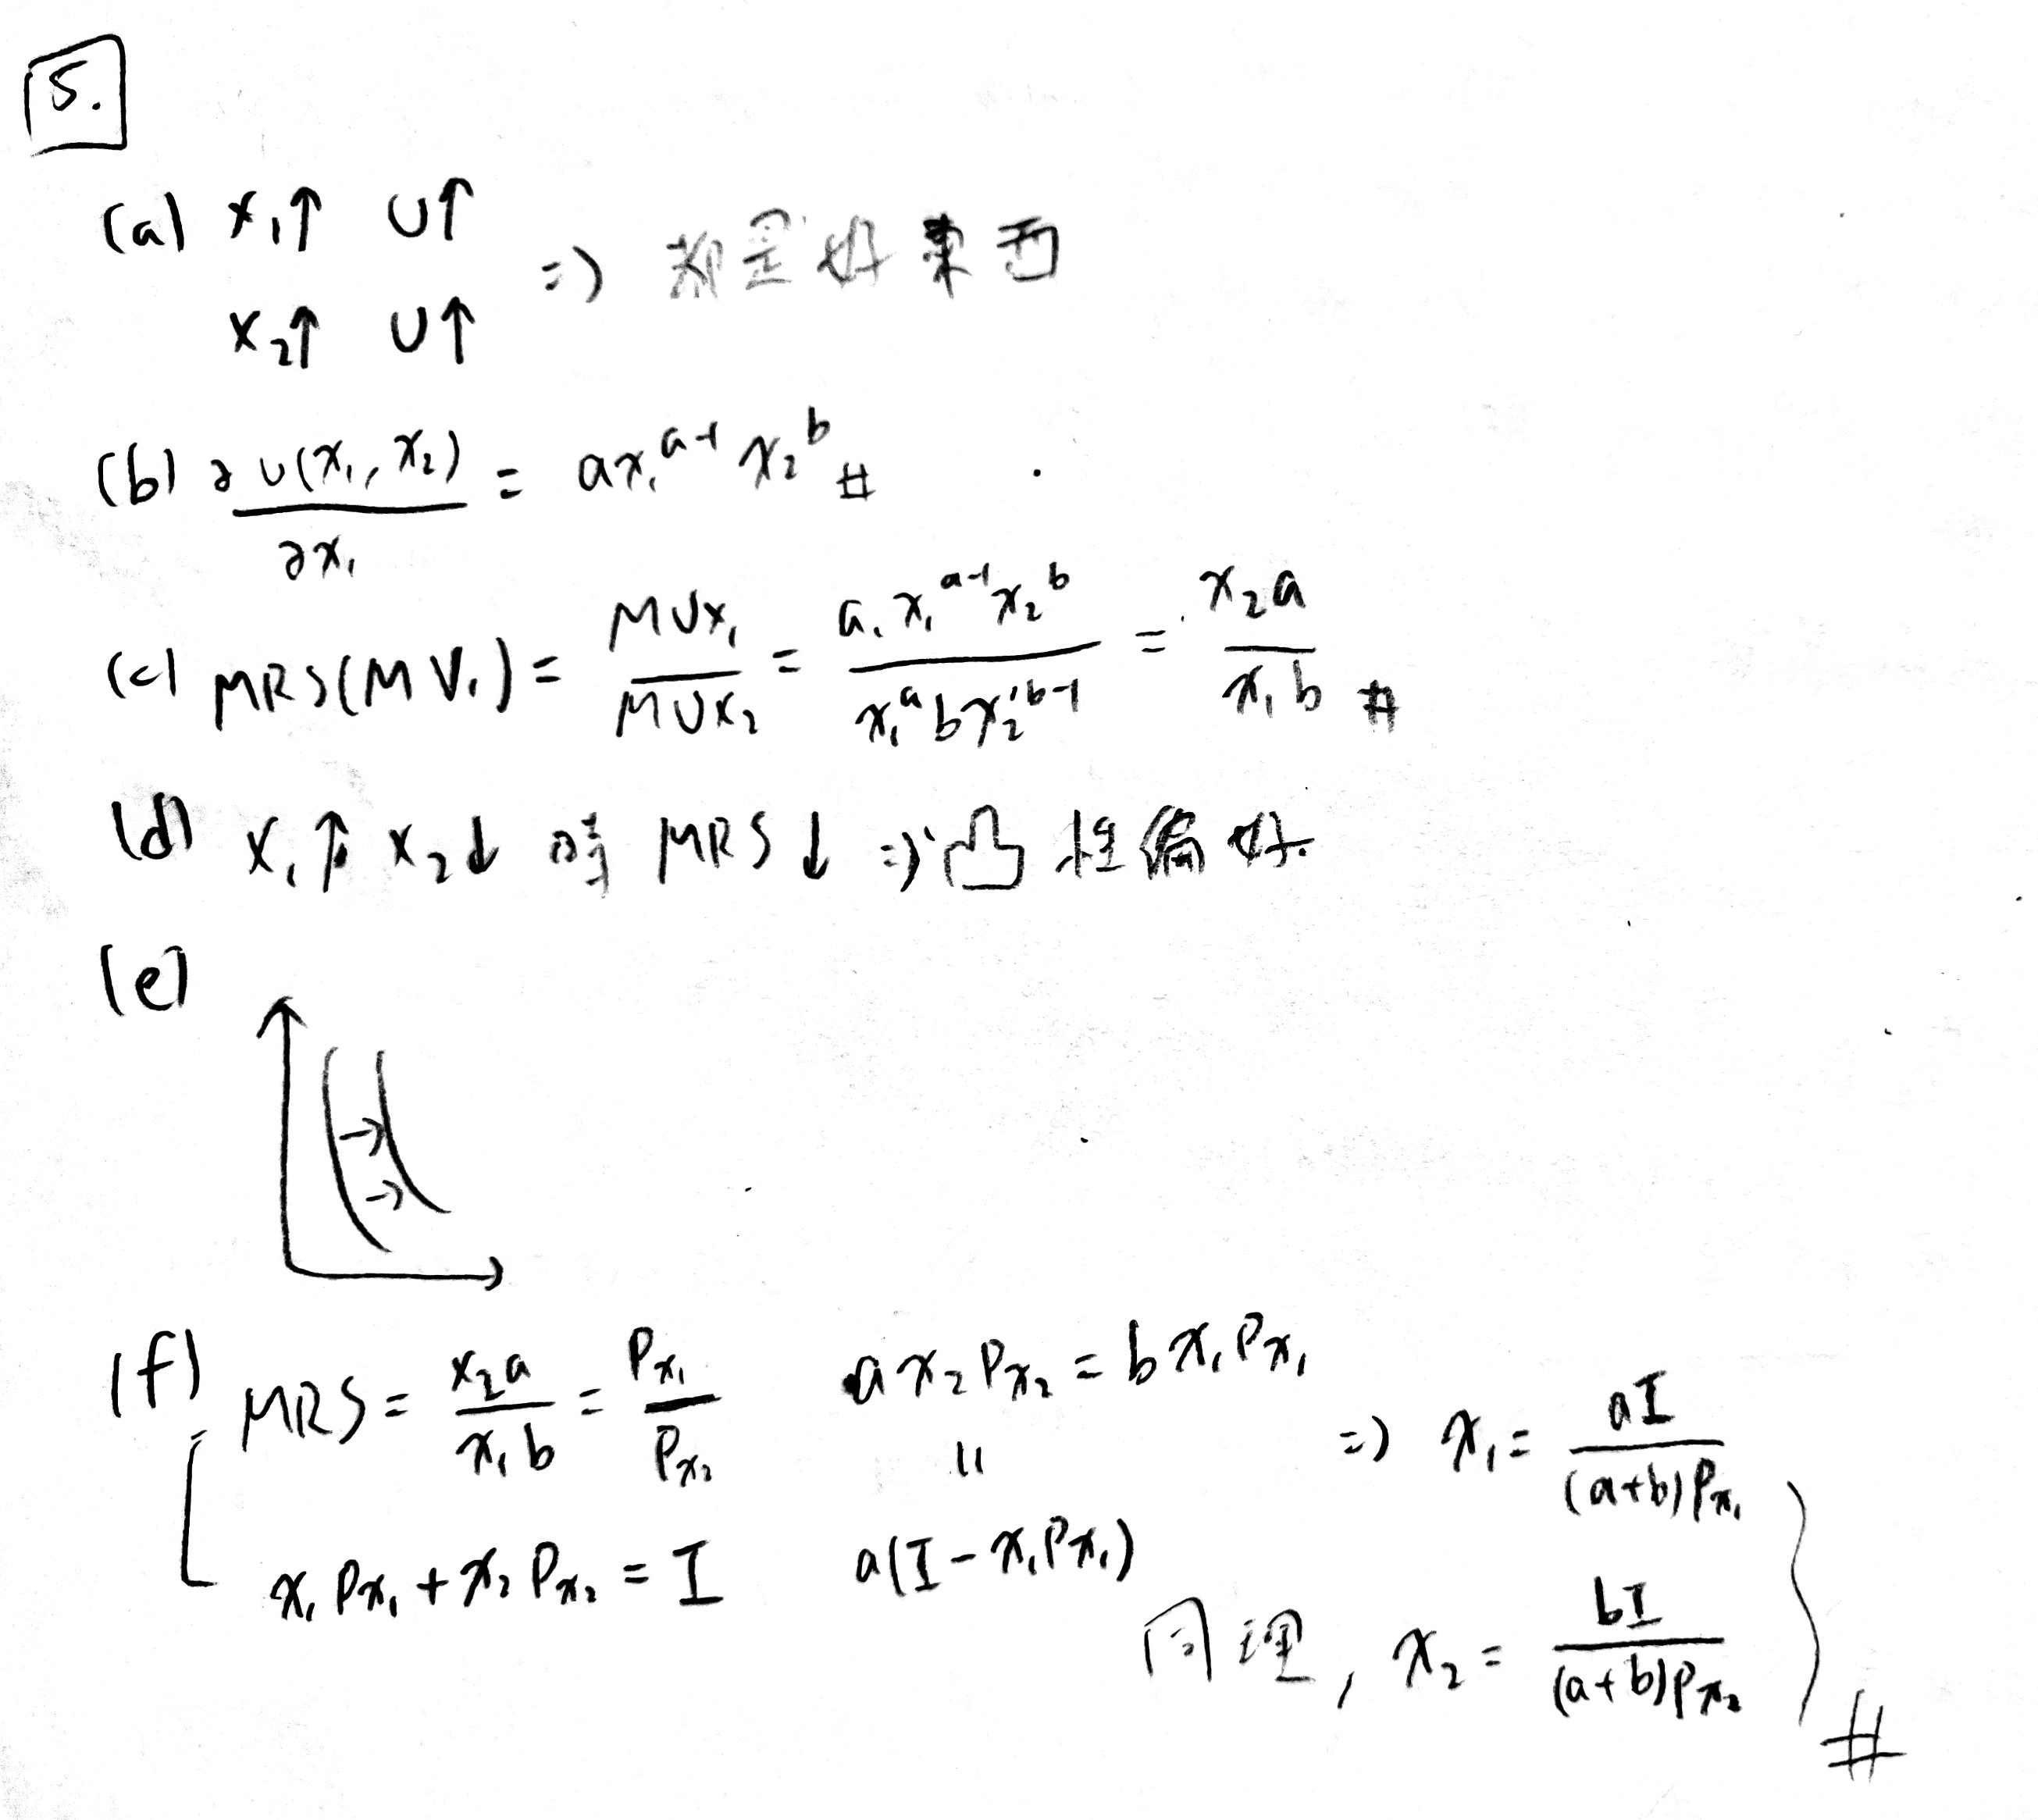 5.
(a) x₁↑ U↑
⇒ 都是好東西
x₂↑ U↑
(b) ∂U(x₁, x₂) / ∂x₁ = ax₁^(a-1) x₂^b #
(c) MRS(MV₁) = MUx₁ / MUx₂ = a₁x₁^(a-1)x₂^b / x₁^a bx₂^(b-1) = x₂a / x₁b #
(d) x₁↑ x₂↓ 時 MRS↓ ⇒ 凸性偏好.
(e)
(f) MRS = x₂a / x₁b = Px₁ / Px₂ ax₂Px₂ = bx₁Px₁
॥ ⇒ x₁ = aI / (a+b)Px₁
x₁Px₁ + x₂Px₂ = I a(I - x₁Px₁)
同理, x₂ = bI / (a+b)Px₂
#